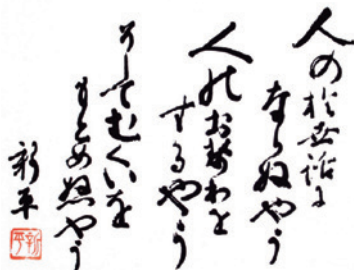 人の於世話に
ならぬやう
人のお世わを
するやう
そしてむくいを
もとめぬやう
新平
新平